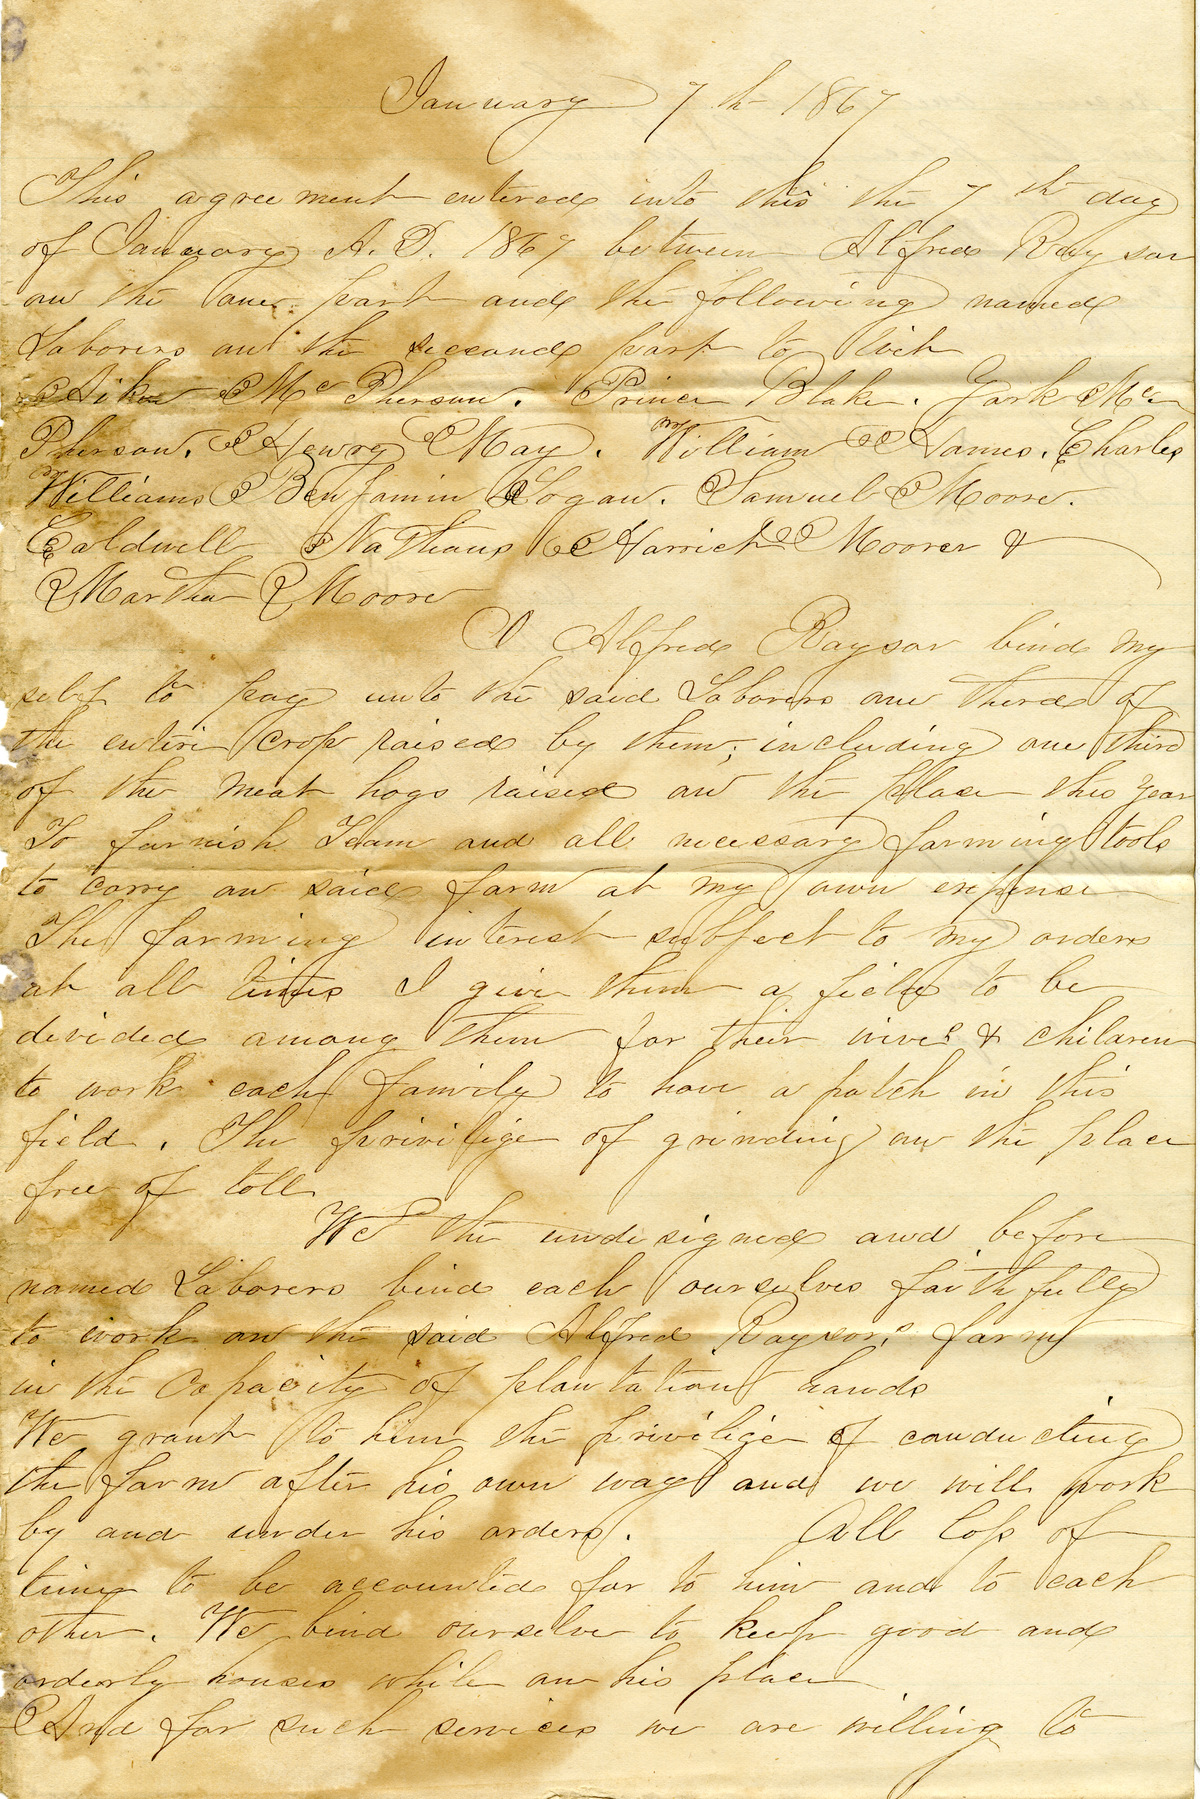 January 7th 1867
This agreement entered into this the 7th day
of January A. D. 1867 between Alfred Raysor
on the one part and the following named
Laborers on the second part to wit
Aiken McPherson. Prince Blake. York Mc
Pherson. Henry May. William James. Charles
Williams Benjamin Logan. Samuel Moore.
Caldwell Nathans Harriet Moorer &
Martha Moorer
I Alfred Raysor bind my
self to pay unto the said Laborers one third of
the entire crop raised by them, including one third
of the meat hogs raised on the place this year
To furnish Team and all necessary farming tools
to carry on said farm at my own expense
The farming interest subject to my orders
at all times I give them a field to be
divided among them for their wives & children
to work each family to have a patch in this
field. The privilige of grinding on the place
free of toll
We the undesigned and before
named Laborers bind each ourselves faithfully
to work on the said Alfred Raysors farm
in the capacity of plantation hands
We grant to him the privilige of conducting
the farm after his own way and we will work
by and under his orders. All loss of
time to be accounted for to him and to each
other. We bind ourselve to keep good and
orderly houses while on his place
And for such services we are willing to